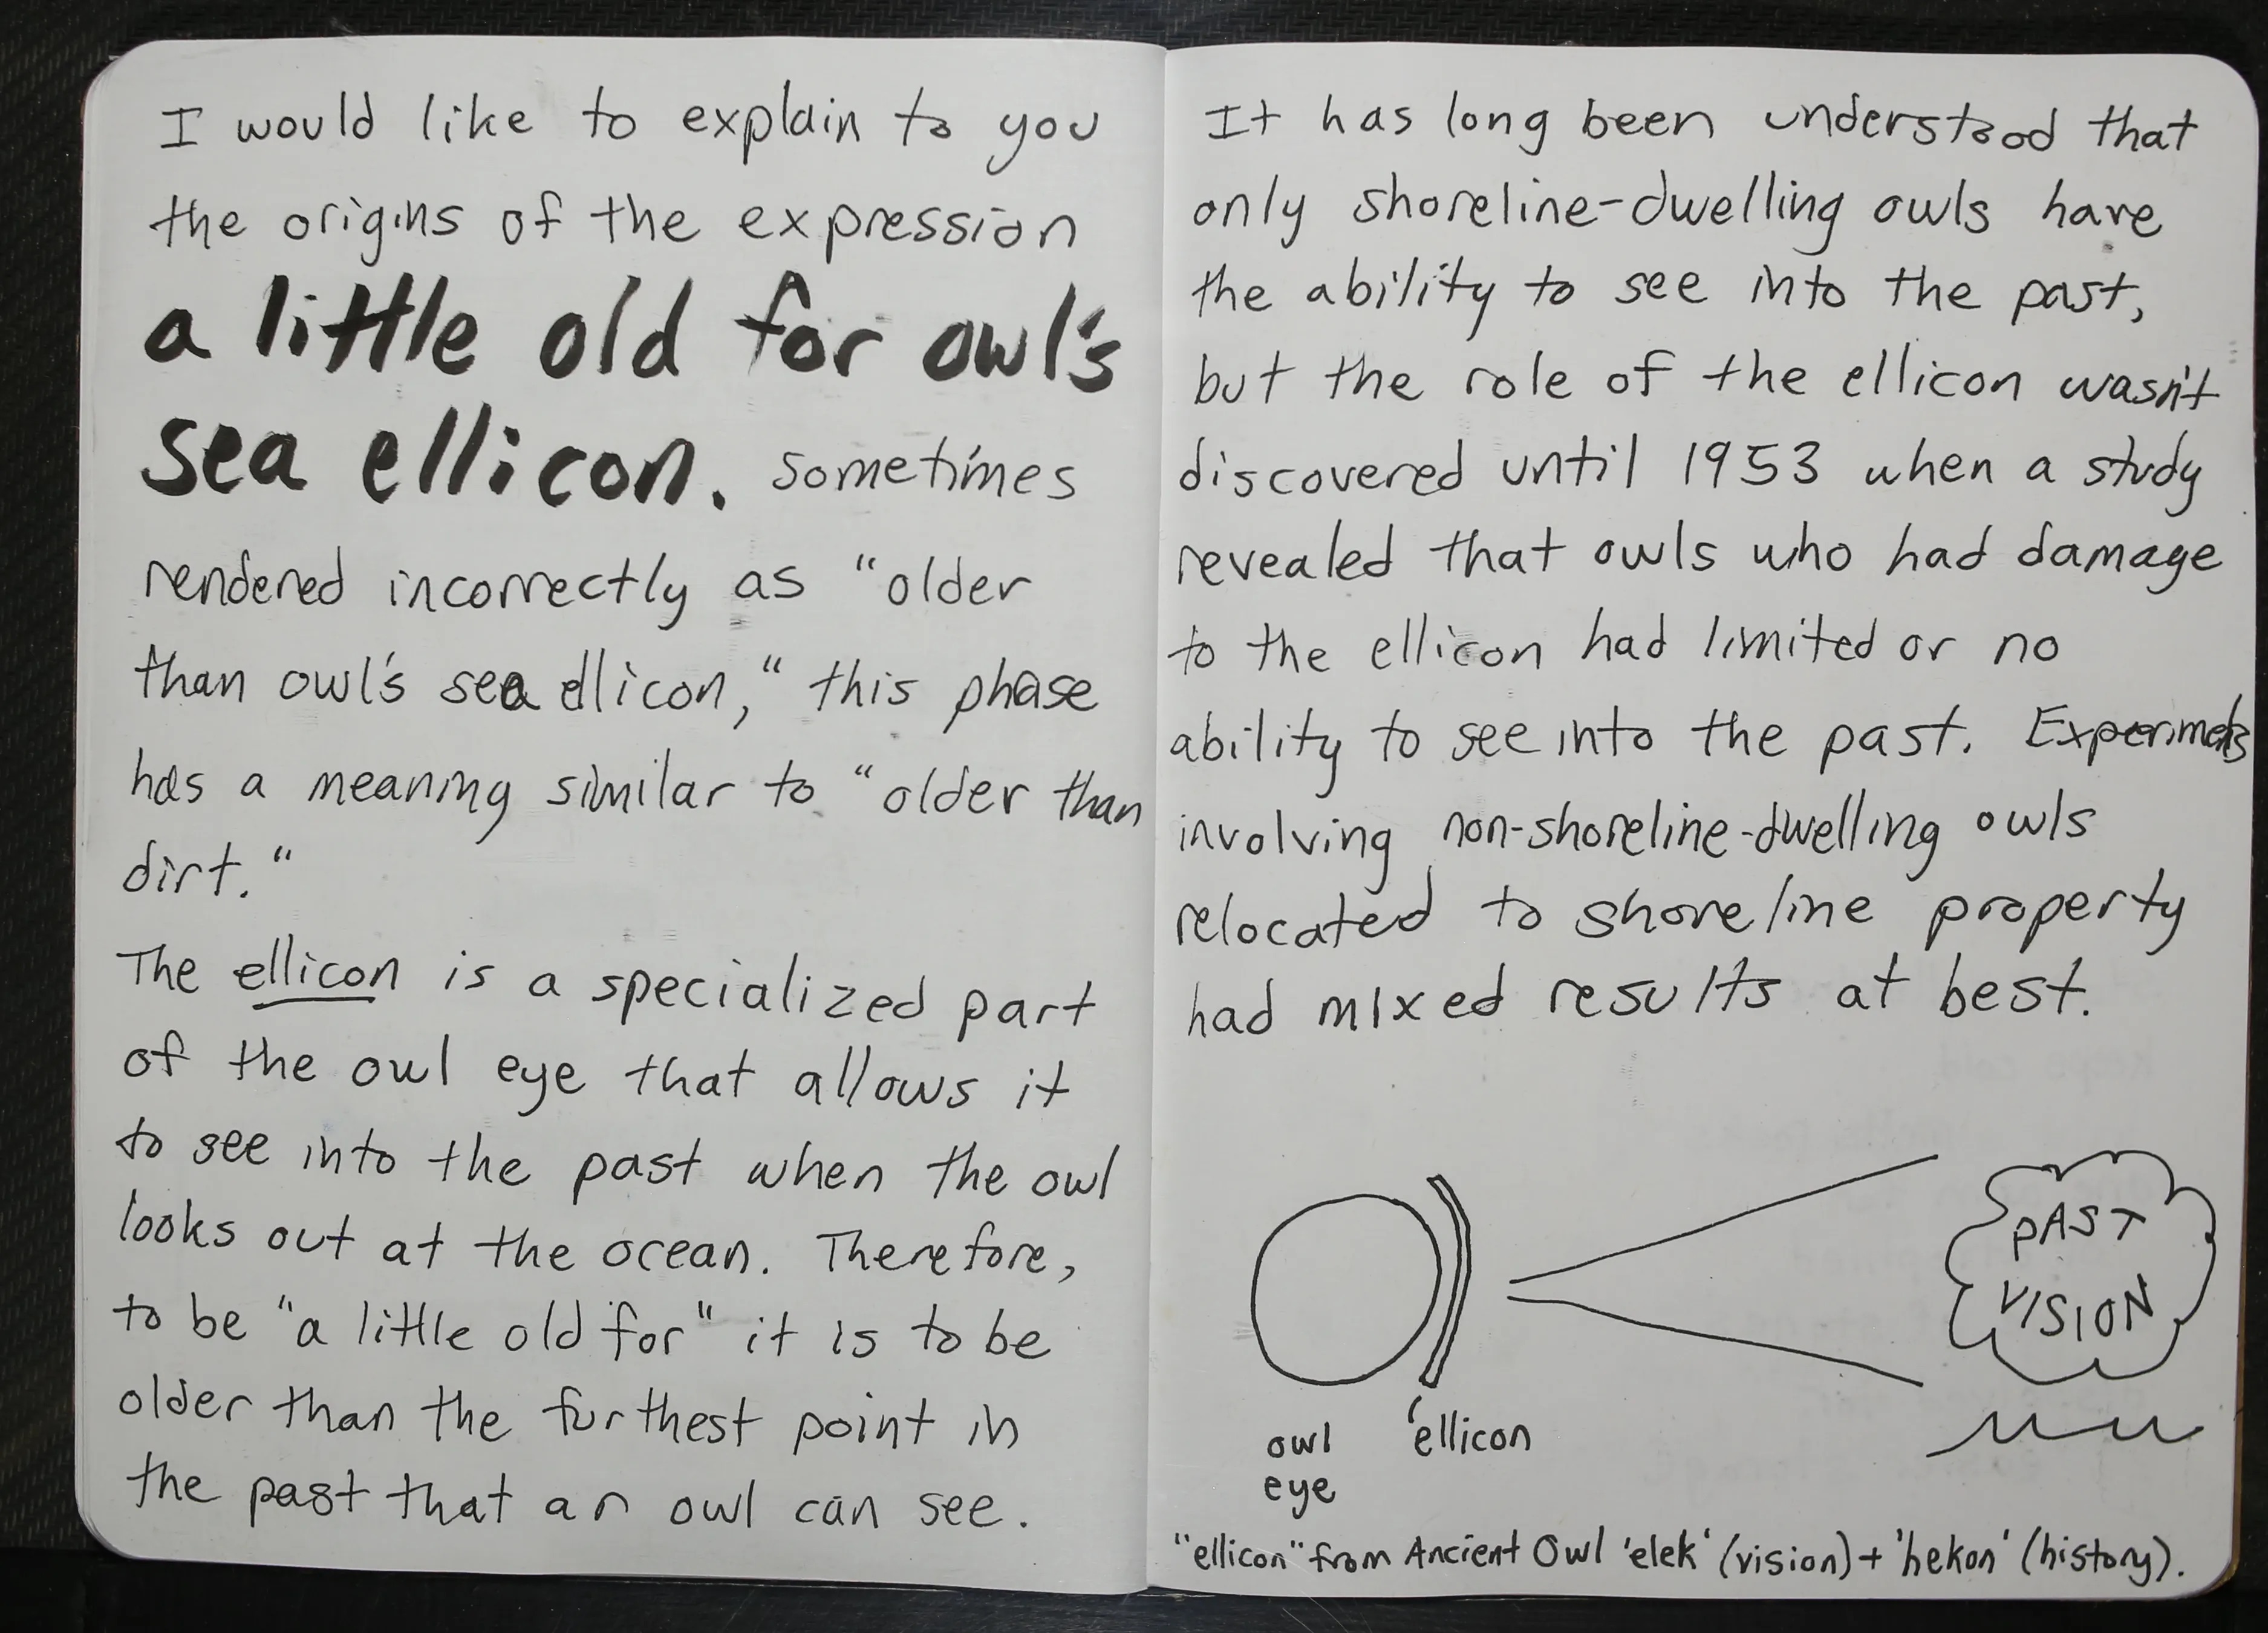 I would like to explain to you
the origins of the expression
a little old for owl's
sea ellicon. sometimes
rendered incorrectly as "older
than owl's sea ellicon," this phase
has a meaning similar to "older than
dirt."
The ellicon is a specialized part
of the owl eye that allows it
to see into the past when the owl
looks out at the ocean. Therefore,
to be "a little old for" it is to be
older than the furthest point in
the past that an owl can see.
It has long been understood that
only shoreline-dwelling owls have
the ability to see into the past,
but the role of the ellicon wasn't
discovered until 1953 when a study
revealed that owls who had damage
to the ellicon had limited or no
ability to see into the past. Experiments
involving non-shoreline-dwelling owls
relocated to shoreline property
had mixed results at best.
PAST
VISION
owl
eye
ellicon
"ellicon" from Ancient Owl 'elek' (vision) + 'hekon' (history).